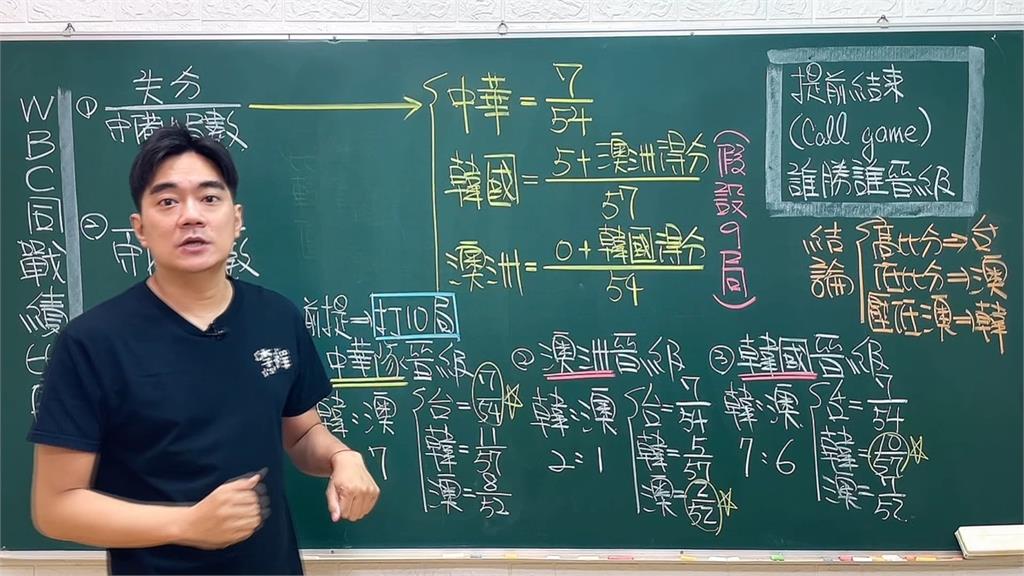 WBC同戰績
① 失分
② 
中華 = 7/54
韓國 = 5+澳洲得分/57
澳洲 = 0+韓國得分/54
(假設9局)
提前結束
(Call game)
誰勝誰晉級
結論
高比分⇒台
低比分⇒澳
⇒韓
前提→打10局
中華隊晉級
韓:澳
7
台=7/54
韓=11/57
澳=8/52
② 澳洲晉級
韓:澳
2:1
台=7/54
韓=5/57
澳=2/52
③ 韓國晉級
韓:澳
7:6
台=7/54
韓=10/57
澳=7/52